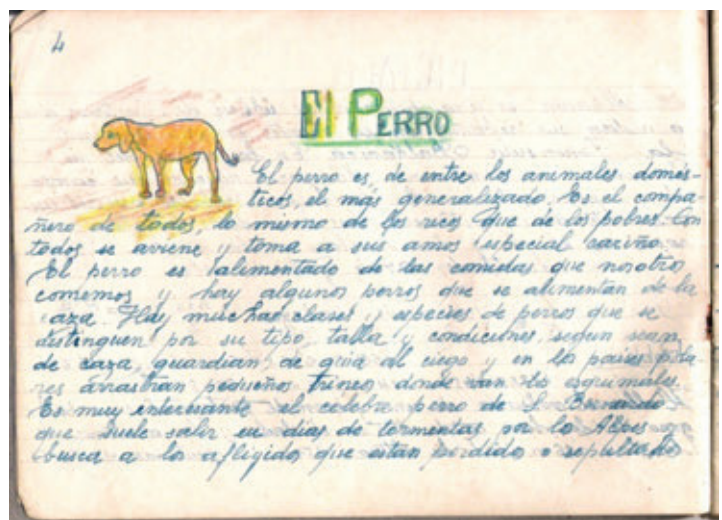 4
El PERRO
El perro es, de entre los animales domés-
ticos, el más generalizado. Es el compa-
ñero de todos, lo mismo de los ricos que de los pobres. Con
todos se aviene y toma a sus amos especial cariño.
El perro es alimentado de las comidas que nosotros
comemos y hay algunos perros que se alimentan de la
caza. Hay muchas clases y especies de perros que se
distinguen por su tipo, talla y condiciones, segun sean
de caza, guardian, de guia al ciego y en los paises pola-
res arrastran pequeños trineos donde van los esquimales.
Es muy interesante el célebre perro de S. Bernardo
que suele salir en dias de tormentas por los Alpes
busca a los afligidos que estan perdidos o sepultados